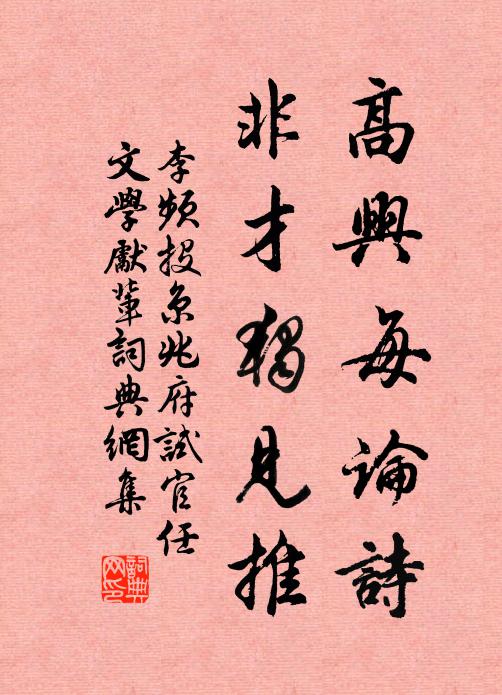 高興每論詩
非才獨見推
李頻投京兆府試官任
文學獻輩詞典網集
詞典
网印